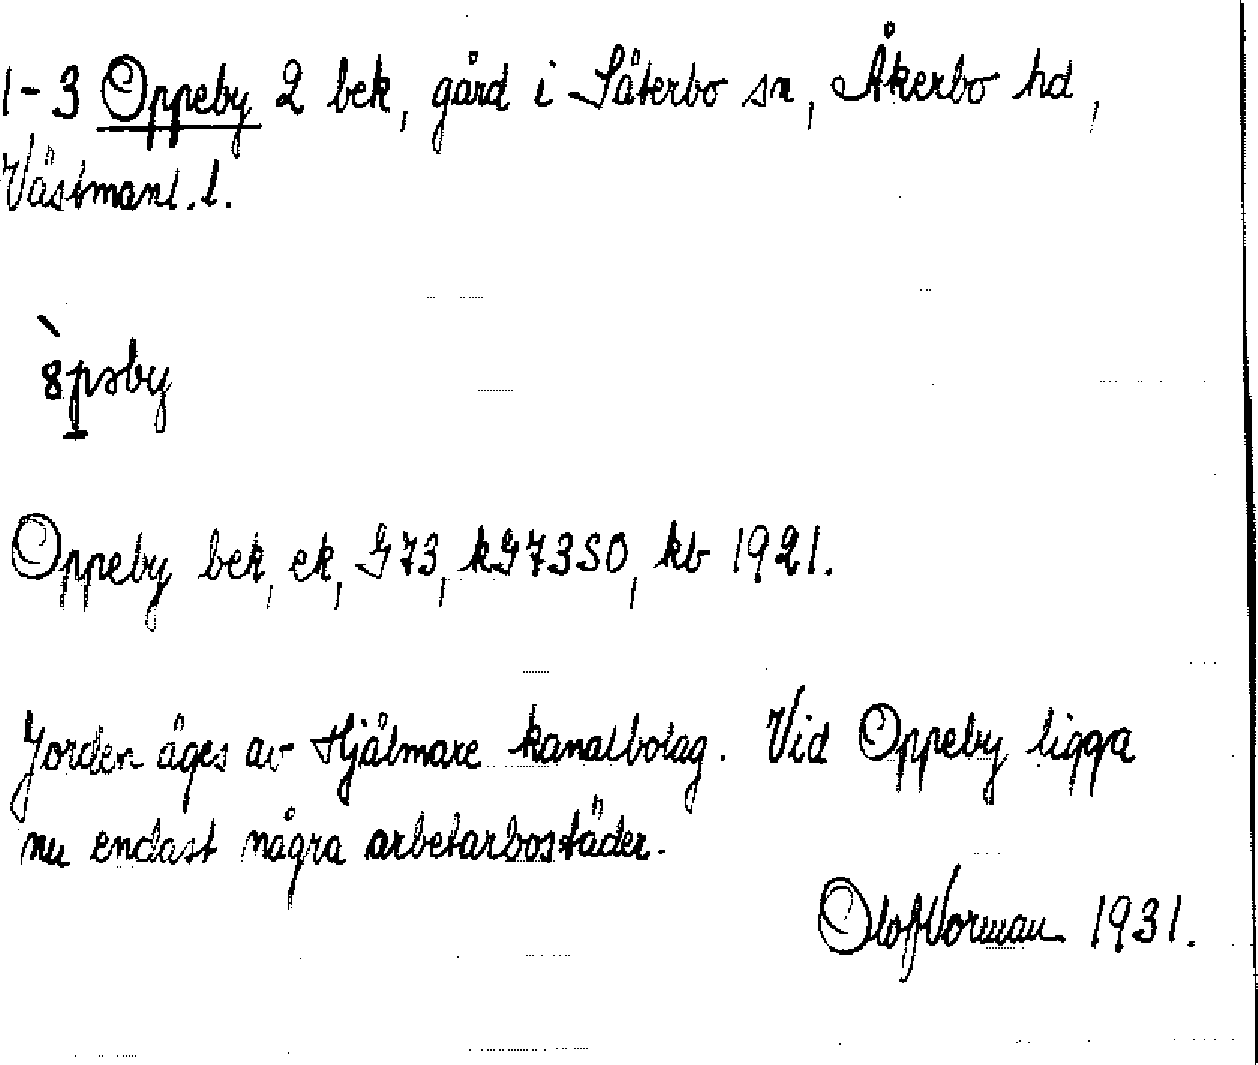 1-3 Oppeby 2 bek, gård i Säterbo sn, Åkerbo hd,
Västmanl. l.
Oppeby bek, ek, G73, kG73SO, kb 1921.
Jorden äges av Hjälmare kanalbolag. Vid Oppeby ligga
nu endast några arbetarbostäder.
Olof Norman 1931.